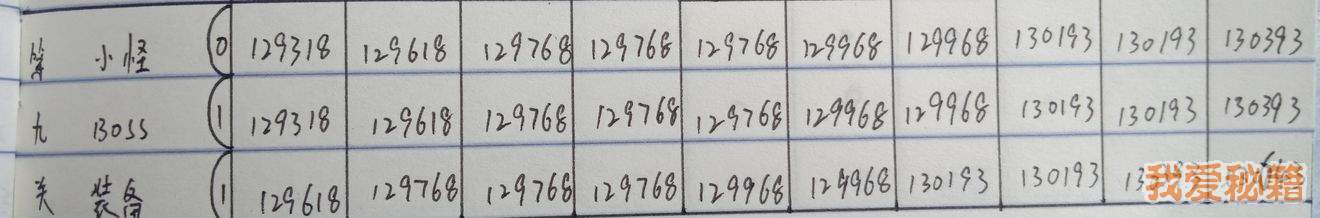 第 小怪 0 129318 129618 129768 129768 129768 129968 129968 130193 130193 130393
九 BOSS 1 129318 129618 129768 129768 129768 129968 129968 130193 130193 130393
关 装备 1 129618 129768 129768 129768 129968 129968 130193 130193
我爱秘籍